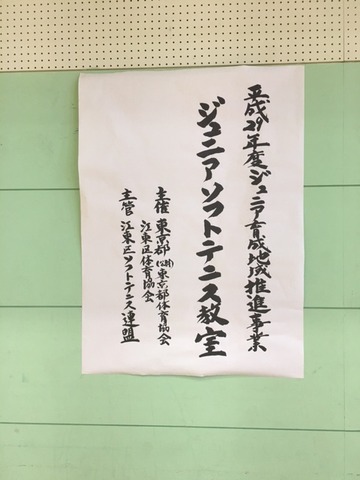 平成29年度ジュニア育成地域推進事業
ジュニアソフトテニス教室
主催 東京都 (公財)東京都体育協会
江東区体育協会
主管 江東区ソフトテニス連盟